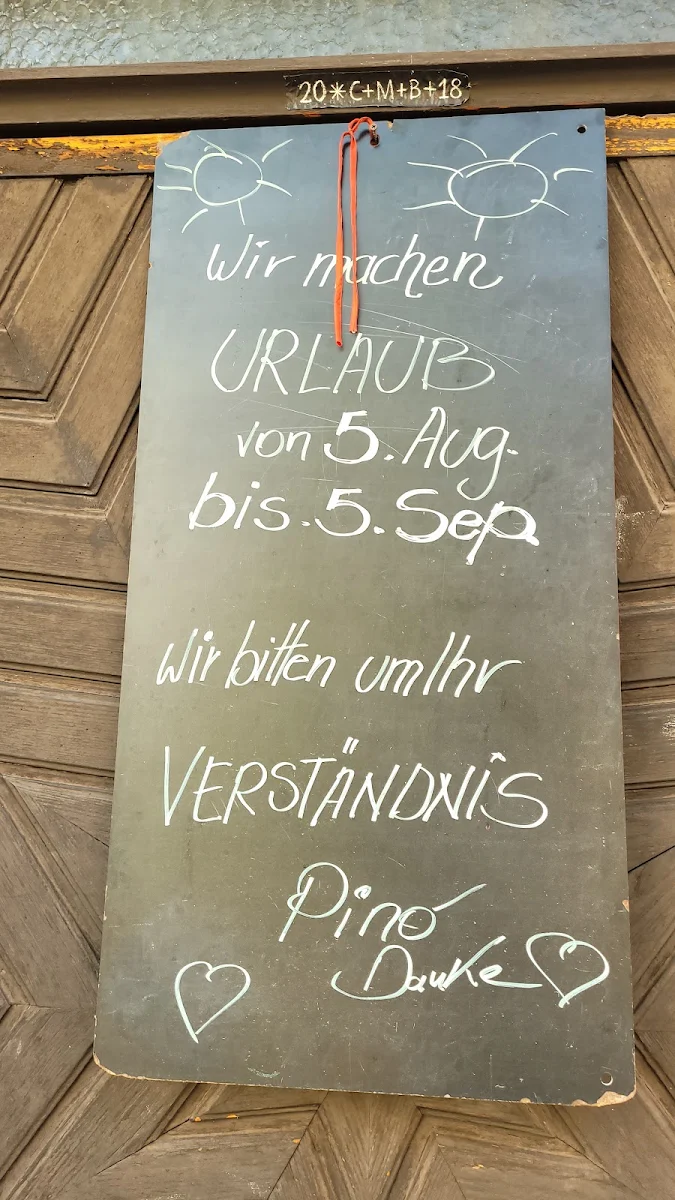 20*C+M+B+18
Wir machen
URLAUB
von 5. Aug.
bis. 5. Sep
Wir bitten um Ihr
VERSTÄNDNIS
Pino
Danke